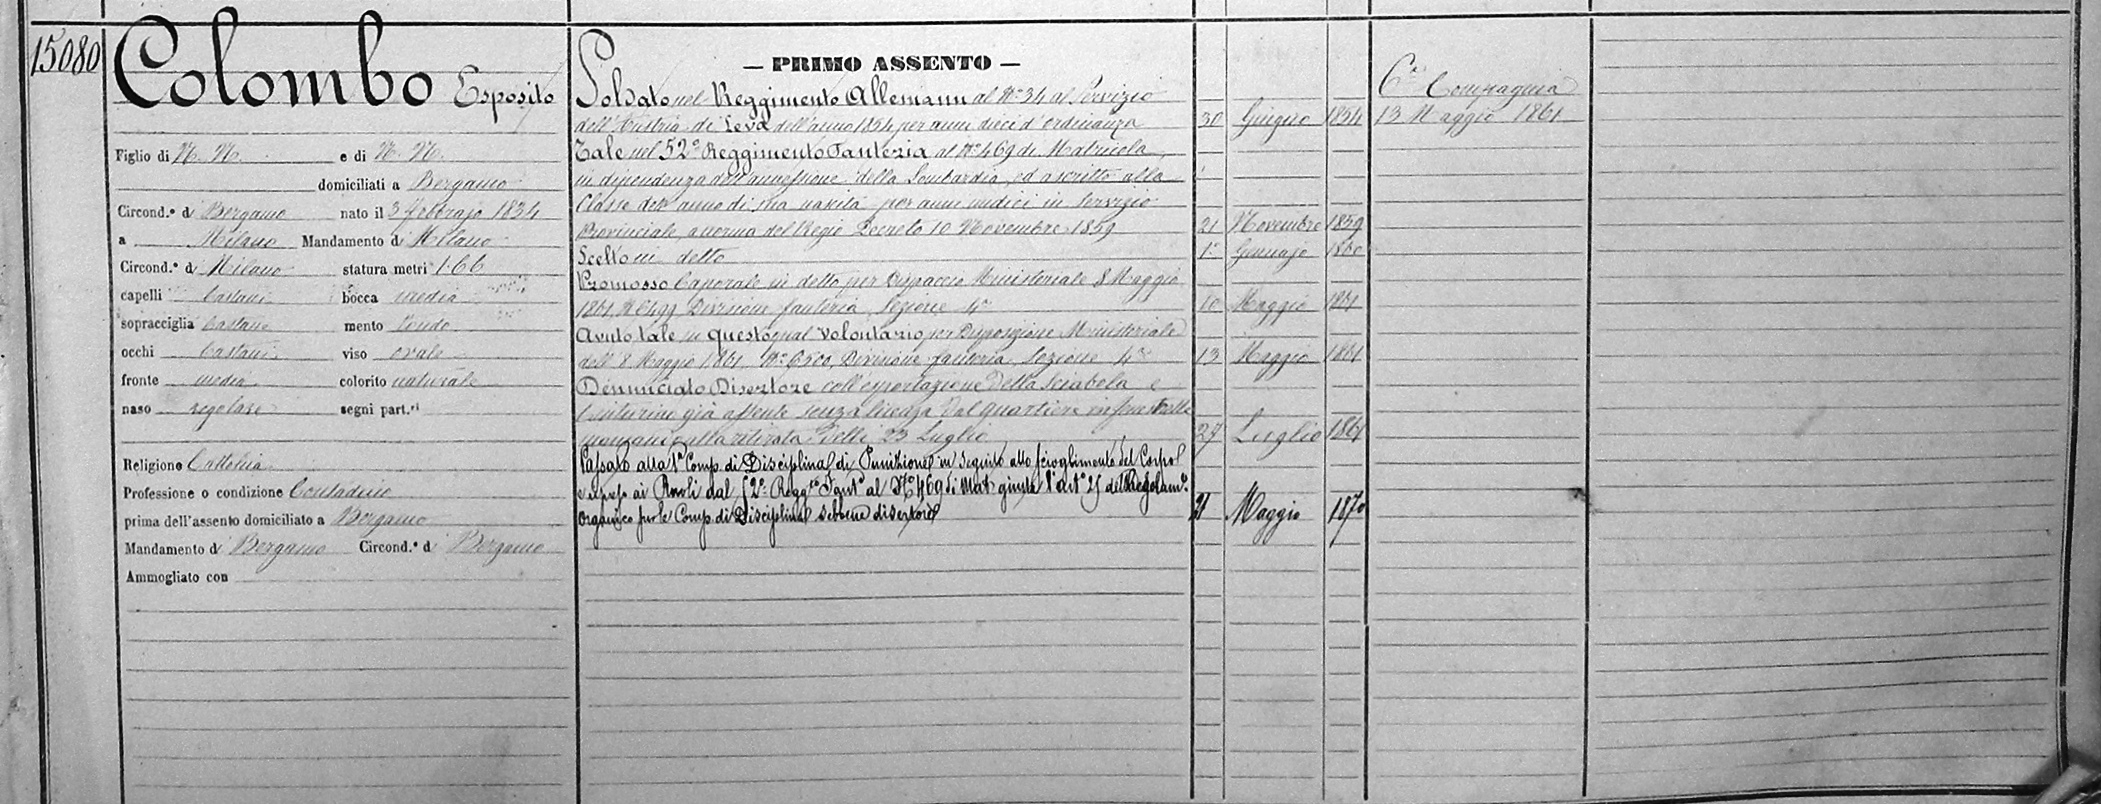 15080
Colombo Esposito
Figlio di N. N. e di N. N.
domiciliati a Bergamo
Circond.º di Bergamo nato il 3 febbrajo 1834
a Milano Mandamento di Milano
Circond.º di Milano statura metri 1.66
capelli Castani bocca media
sopracciglia Castane mento tondo
occhi Castani viso ovale
fronte media colorito naturale
naso regolare segni part.ri
Religione Cattolica
Professione o condizione Contadino
prima dell'assento domiciliato a Bergamo
Mandamento di Bergamo Circond.º di Bergamo
Ammogliato con
— PRIMO ASSENTO —
Soldato nel Reggimento Allemann al Nº 34 al Servizio
dell'Austria di Leva dell'anno 1854 per anni dieci d'ordinanza 30 Giugno 1854
Tale nel 52º Reggimento Fanteria al Nº 469 di Matricola
in dipendenza dell'annessione della Lombardia, ed ascritto alla
Classe dell'anno di sua nascita per anni undici in servizio
Provinciale, a norma del Regio Decreto 10 Novembre 1859 21 Novembre 1859
Scelto in detto 1º Gennajo 1860
Promosso Caporale in detto per Dispaccio Ministeriale 8 Maggio
1861 Nº 6499 Divisione fanteria, Sezione 4ª 10 Maggio 1861
Avuto tale in questo qual Volontario per Disposizione Ministeriale
dell'8 Maggio 1861, Nº 6500, Divisione fanteria, Sezione 4ª 13 Maggio 1861
Denunciato Disertore coll'esportazione della sciabola e
Centurino già assente senza licenza dal quartiere in Fenestrelle
mancante alla ritirata delli 23 Luglio 27 Luglio 1861
Passato alla 1ª Comp. di Disciplina di Punizione in seguito allo scioglimento del Corpo
ai Ruoli dal 52º Regg.to Fant.ª al Nº 469 di Mat. giusta l'art.º 25 del Regolam.º
Organico per le Comp. di Disciplina sebbene disertore 21 Maggio 1870
6ª Compagnia
13 Maggio 1861